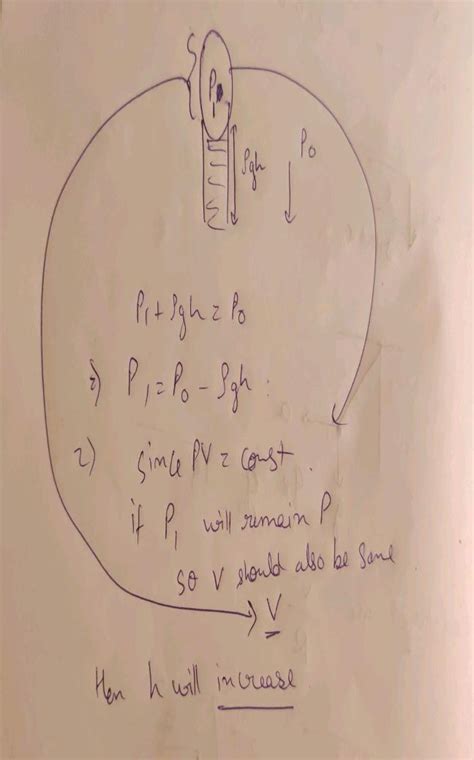 P₁
ρgh
P₀
P₁ + ρgh = P₀
⇒) P₁ = P₀ - ρgh .
2) Since PV = const .
if P₁ will remain P
so V should also be same
V
Hen h will increase